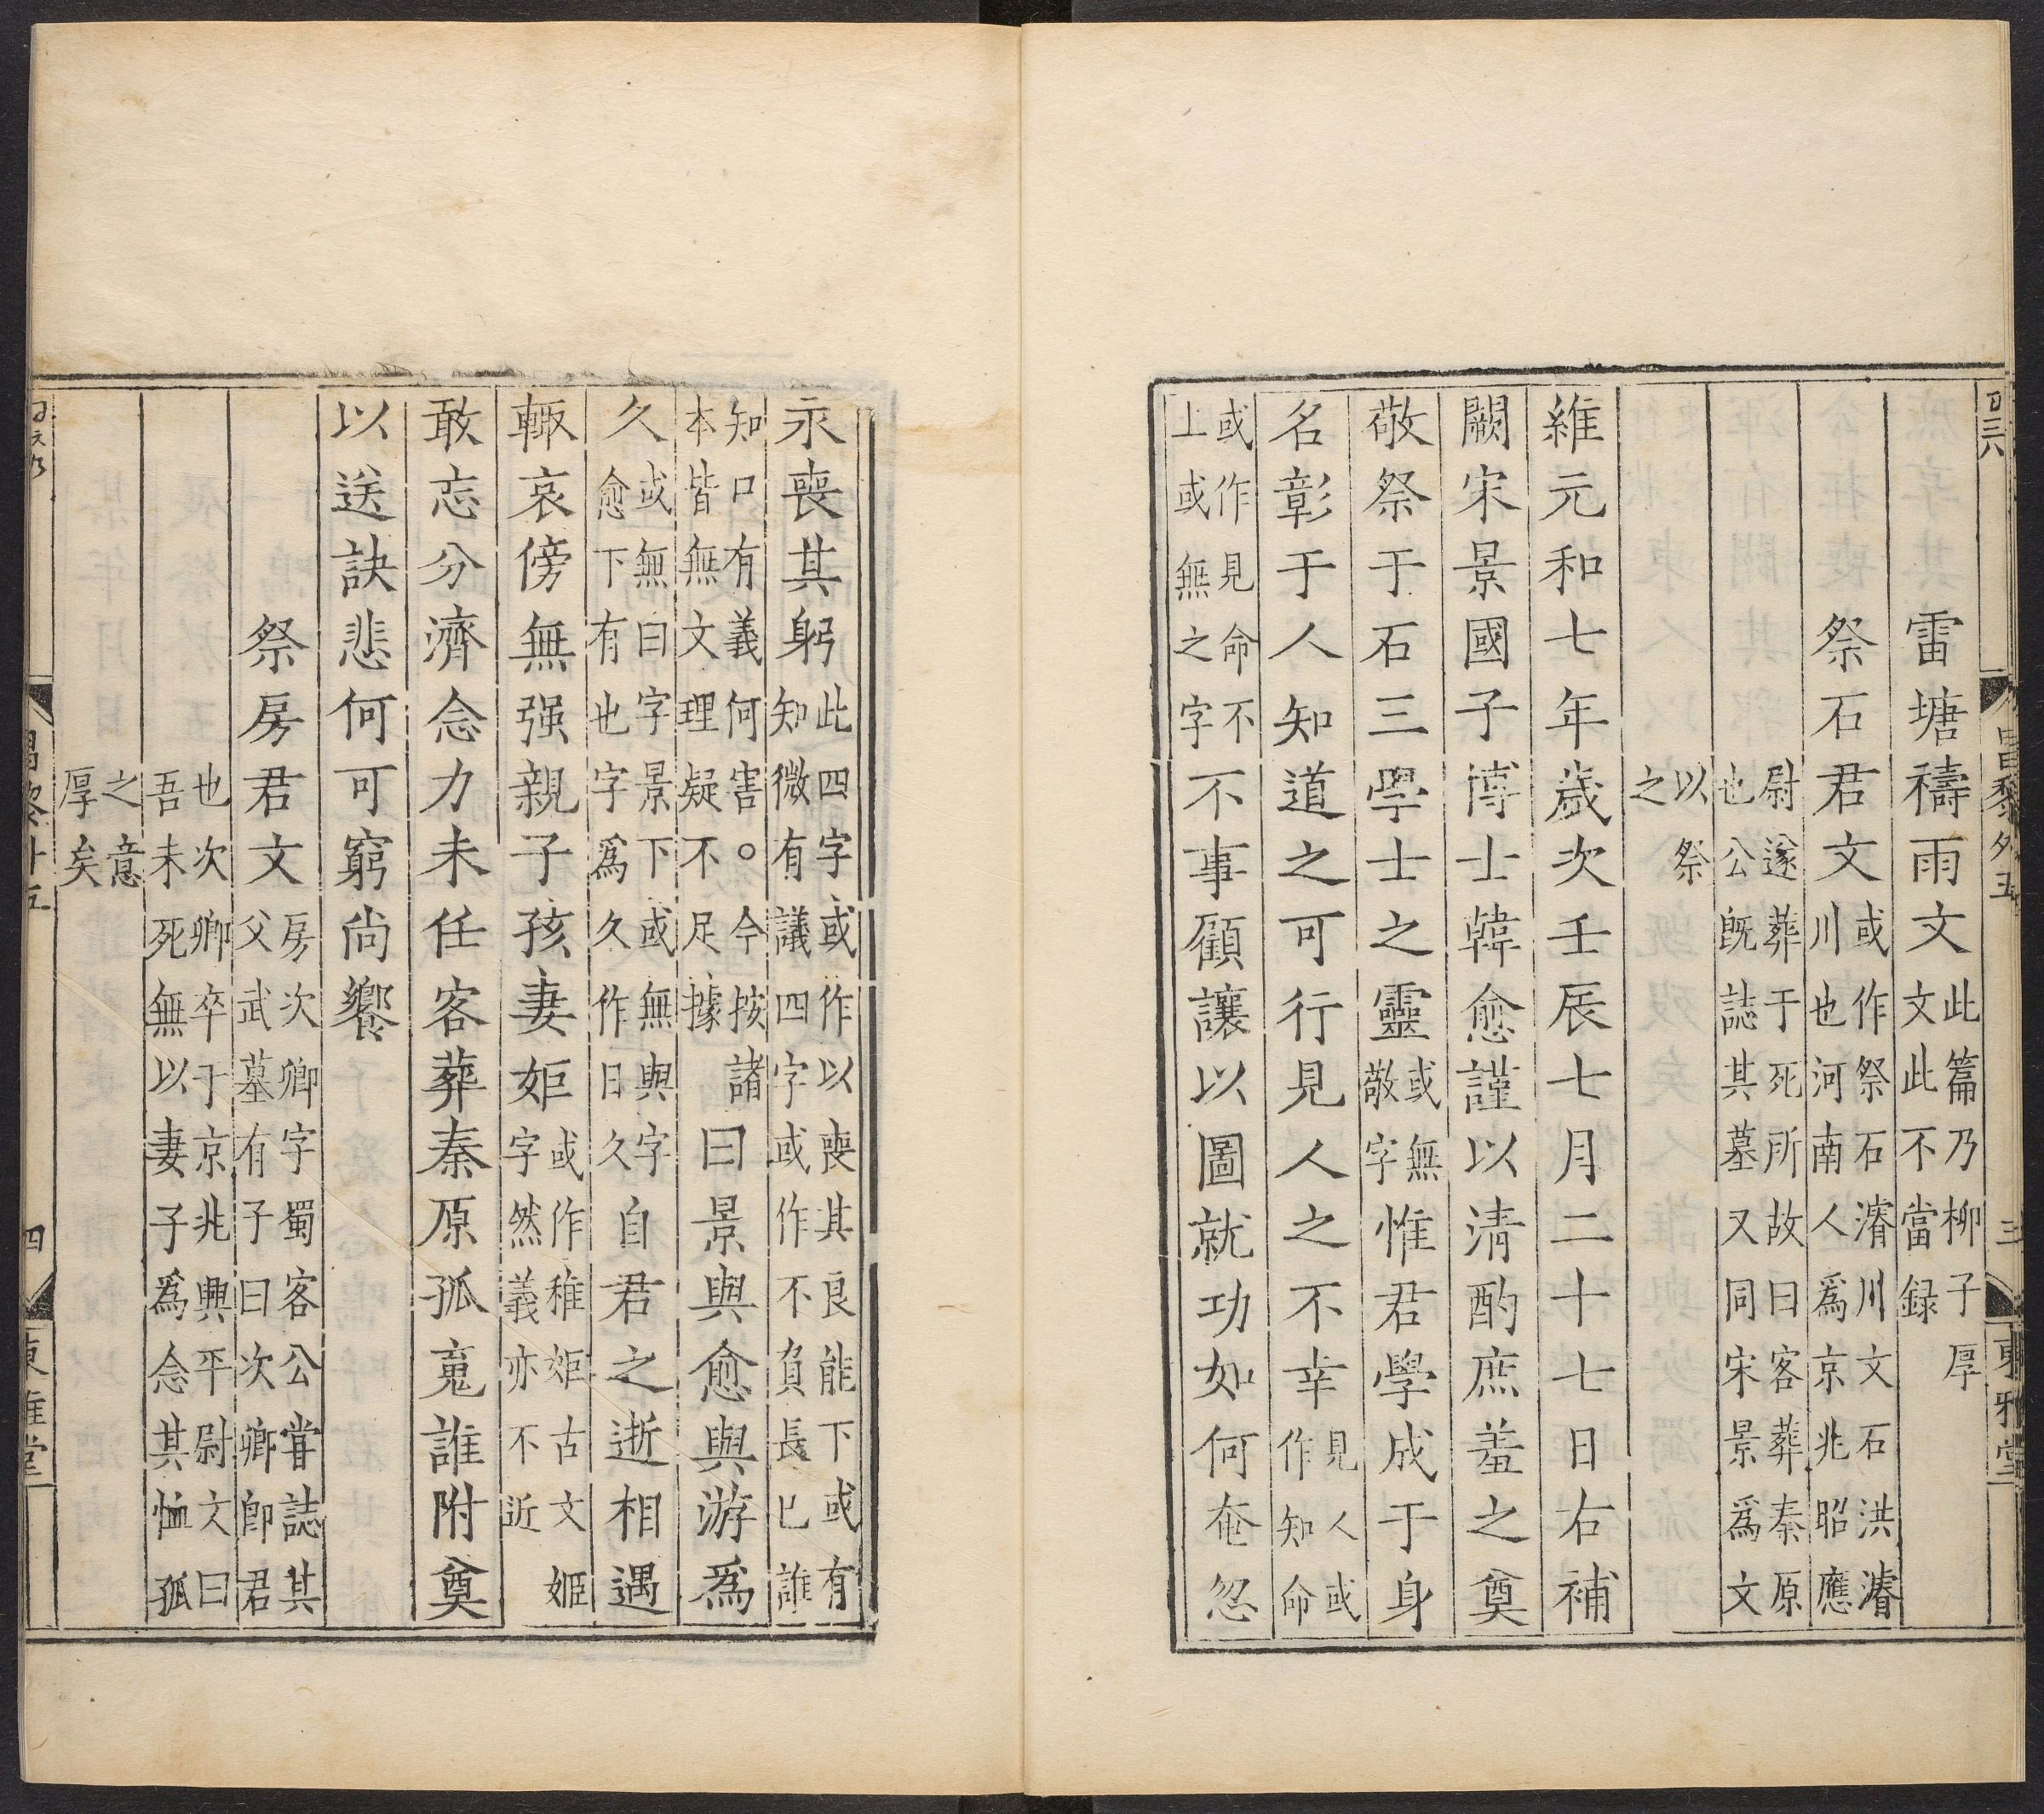 昌黎外五 三 東雅堂
雷塘禱雨文此篇乃柳子厚文此不當録
祭石君文或作祭石濬川文石洪濬川也河南人爲京兆昭應
尉遂葬于死所故曰客葬秦原也公既誌其墓又同宋景爲文
以祭之
維元和七年歲次壬辰七月二十七日右補
闕宋景國子博士韓愈謹以清酌庶羞之奠
敬祭于石三學士之靈或無敬字惟君學成于身
名彰于人知道之可行見人之不幸見人或作知命
或作見命不上或無之字不事顧讓以圖就功如何奄忽
永喪其躬此四字或作以喪其良能下或有知微有議四字或作不負長已誰
知口有義何害○今按諸本皆無文理疑不足據曰景與愈與游爲
久或無曰字景下或無與字愈下有也字爲久作日久自君之逝相遇
輒哀傍無强親子孩妻姖或作稚姖古文姬字然義亦不近
敢忘分濟念力未任客葬秦原孤䰟誰附奠
以送訣悲何可窮尚饗
祭房君文房次卿字蜀客公甞誌其父武墓有子曰次卿卽君
也次卿卒于京兆興平尉文曰吾未死無以妻子爲念其恤孤
之意厚矣
四 東雅堂